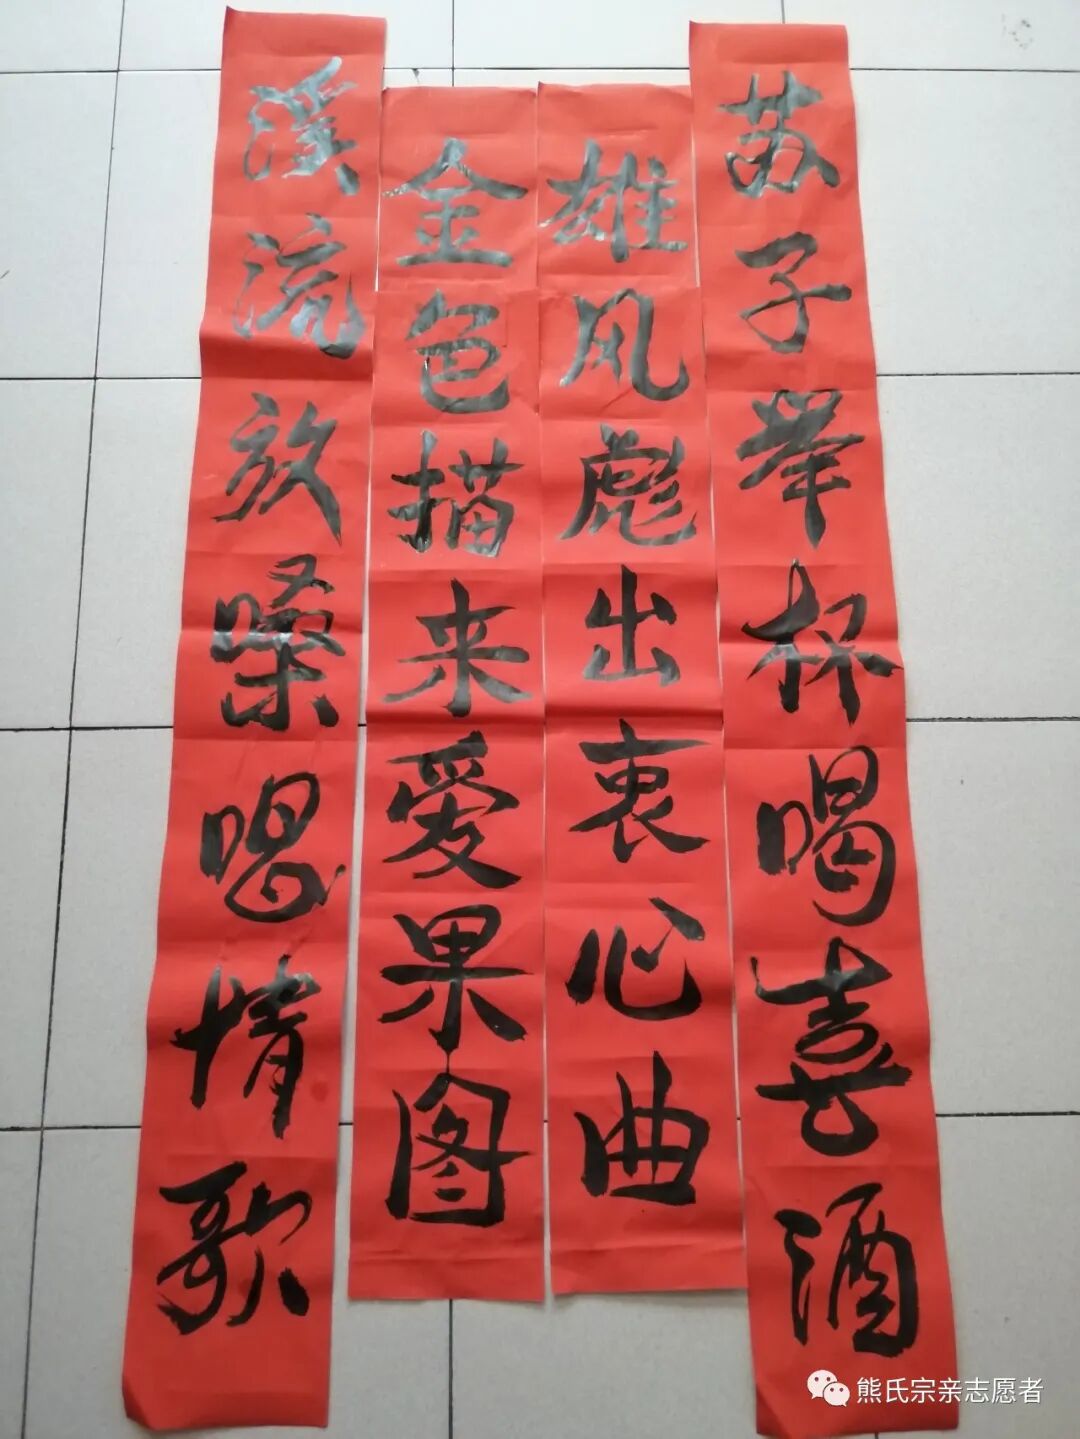 苏子举杯喝喜酒
雄风彪出衷心曲
金色描来爱果图
溪流放嗓唱情歌
熊氏宗亲志愿者